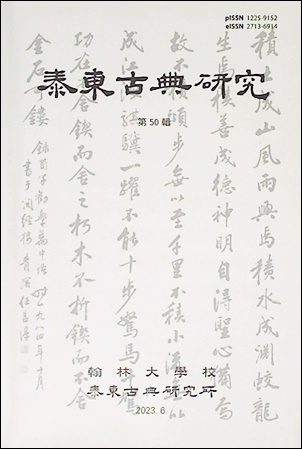 pISSN 1225-9152
eISSN 2713-6914
泰東古典研究
第50輯
積土成山風雨興焉積水成淵蛟龍
生焉積善成德神明自得聖心備焉
故不積蹞步無以至千里不積小流無以
成江海騏驥一躍不能十步駑馬十駕
功在不舍鍥而舍之朽木不折鍥而不舍
金石可鏤
錄荀子勸學篇中語 時一九八四年十月
翰林大學校
泰東古典研究所
2023. 6.